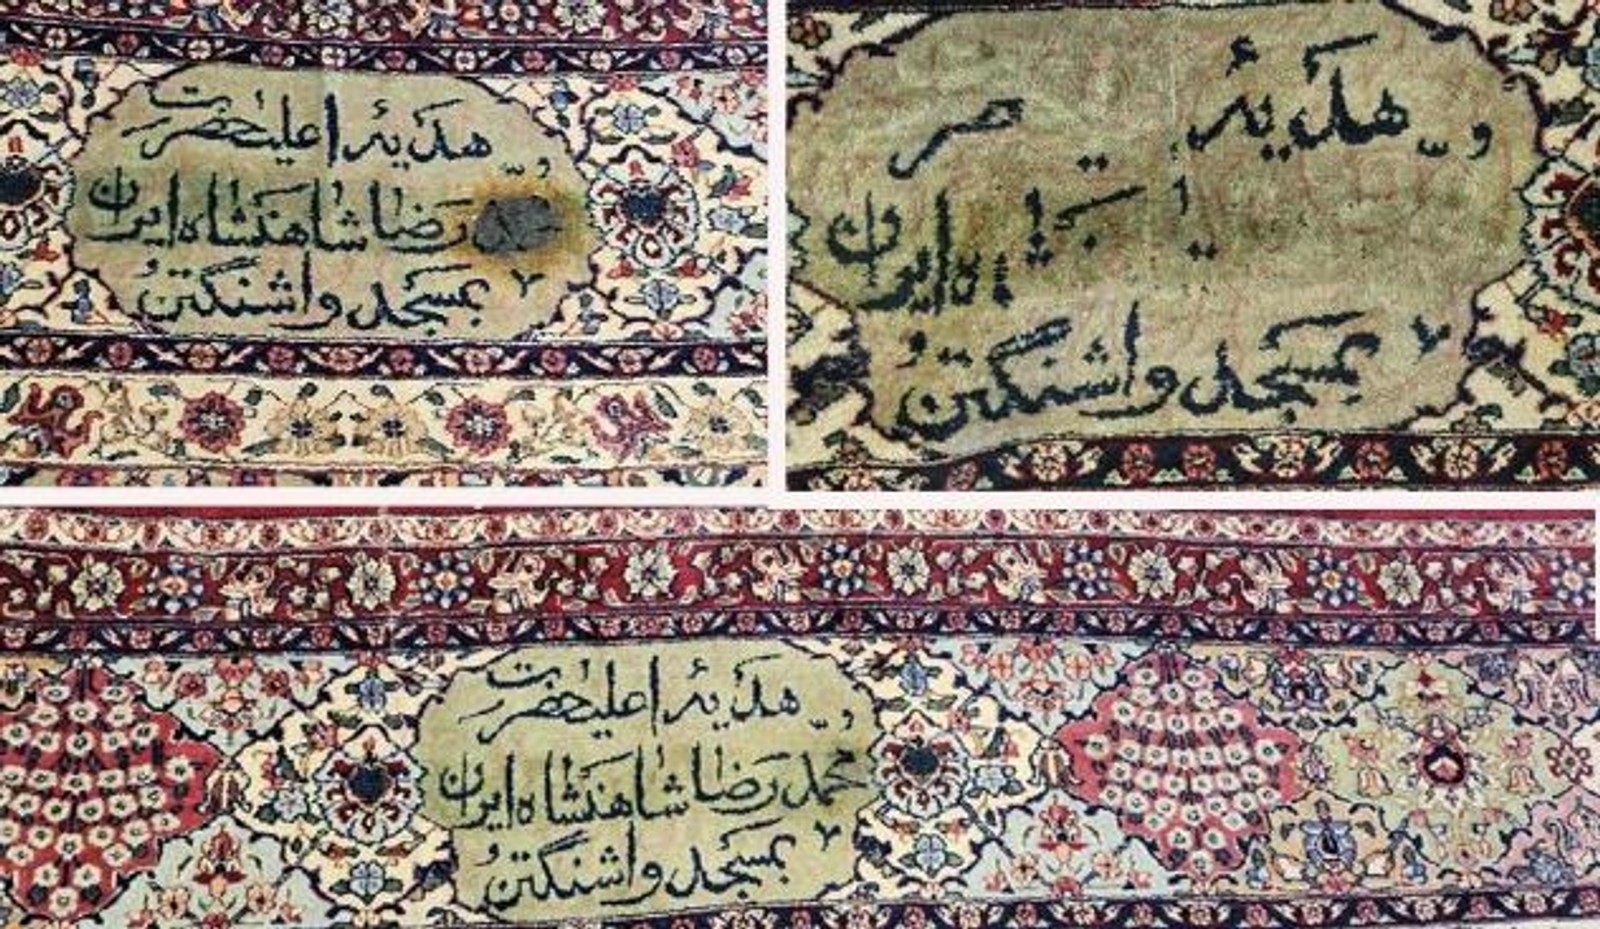 هدیهٔ اعلیحضرت
رضا شاهنشاه ایران
بمسجد واشنگتن
هدیهٔ
ایران
بمسجد واشنگتن
هدیهٔ اعلیحضرت
محمد رضا شاهنشاه ایران
بمسجد واشنگتن